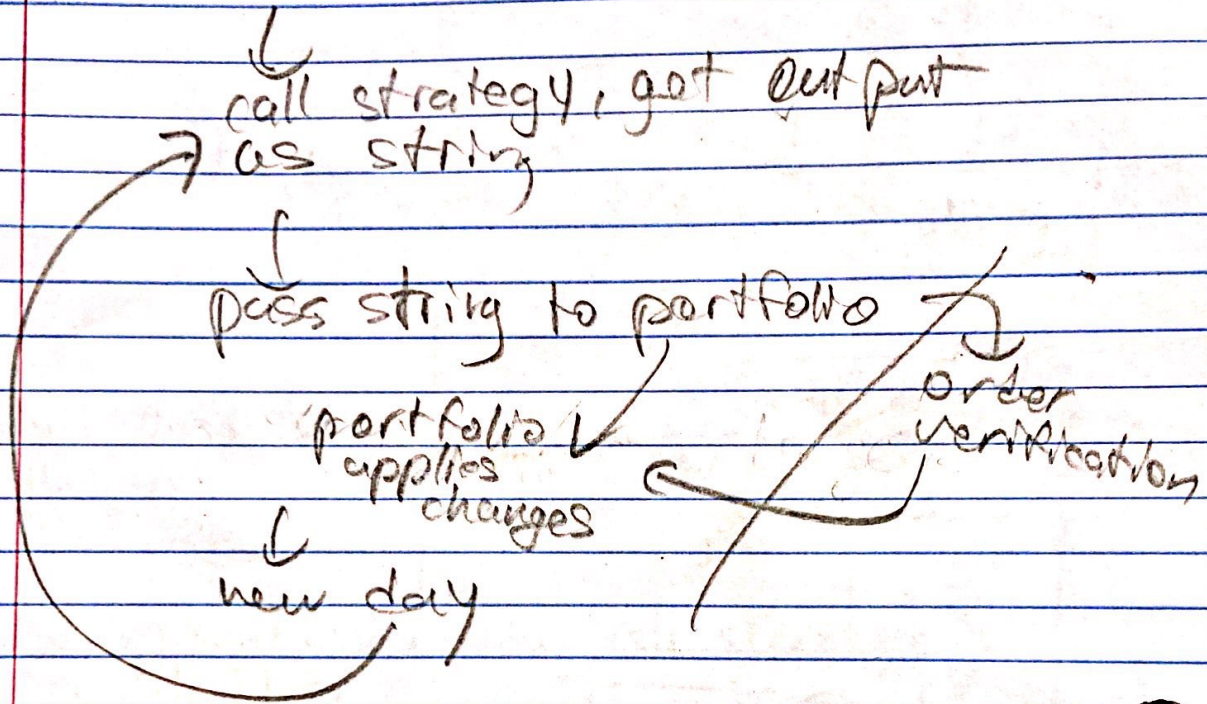 call strategy, get output
as string
pass string to portfolio
order
verification
portfolio
applies
changes
new day